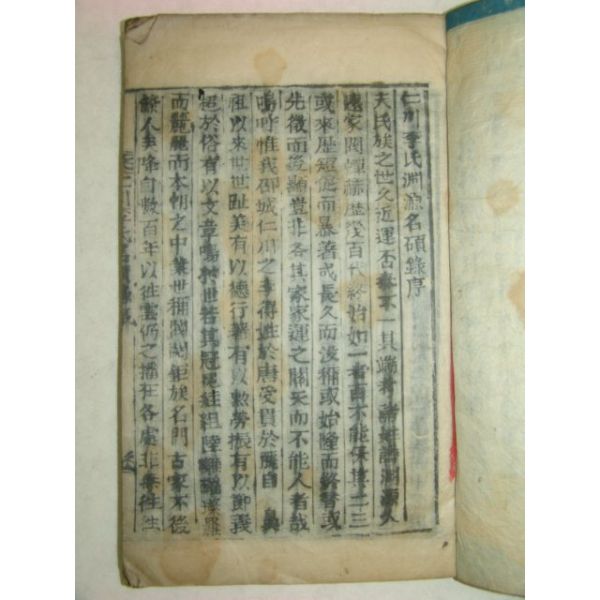 仁川李氏淵源名碩錄序
夫氏族之世久近運否泰不一其端考諸姓譜淵源久
遠家閥燀赫歷幾百代終始如一者百不能保其二三
或來歷短促而暴著或長久而浸稱或始隆而終替或
先微而後顯豈非各其家家運之關天而不能人者哉
嗚呼惟我邵城仁川之李得姓於唐受貫於麗自 鼻
祖以來世世趾美有以德行著有以勲勞振有以節義
絶於俗有以文章鳴於世若其冠冕珪組陸離璀璨羅
而麗麗而本朝之中葉世稱鉅族名門古家不後
於人矣降自數百年以往雲仍之播在各處非不往往